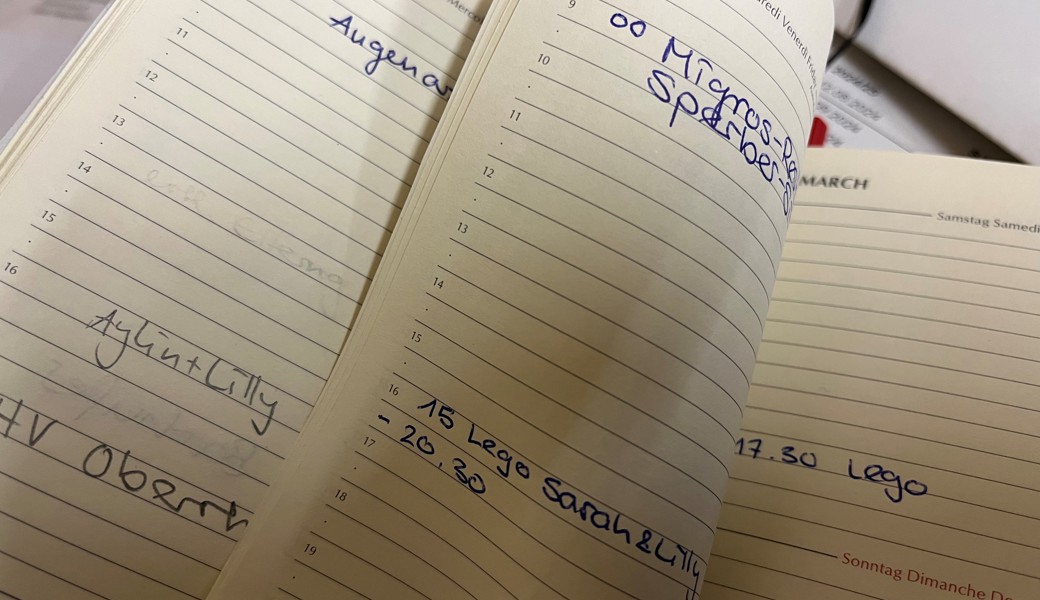 11
Augenar
12
13
14
15
16
Aylin+Lilly
HV Oberrh
redi Venerdi Friday
9
00 Migros-Ra
10
Sparber-
11
12
13
14
15
16
15 Lego Sarah & Lilly
- 20.30
17
18
19
MARCH
Samstag Samedi
17.30 Lego
Sonntag Dimanche Do